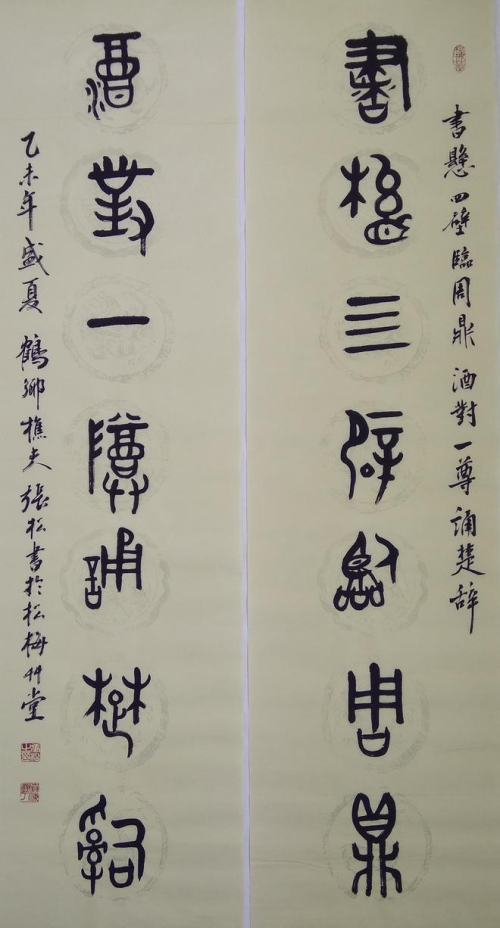 書懸四壁臨周鼎 酒對一尊誦楚辭
書懸四壁臨周鼎
酒對一尊誦楚辭
乙未年盛夏 鶴鄉樵夫 張松書於松梅艸堂